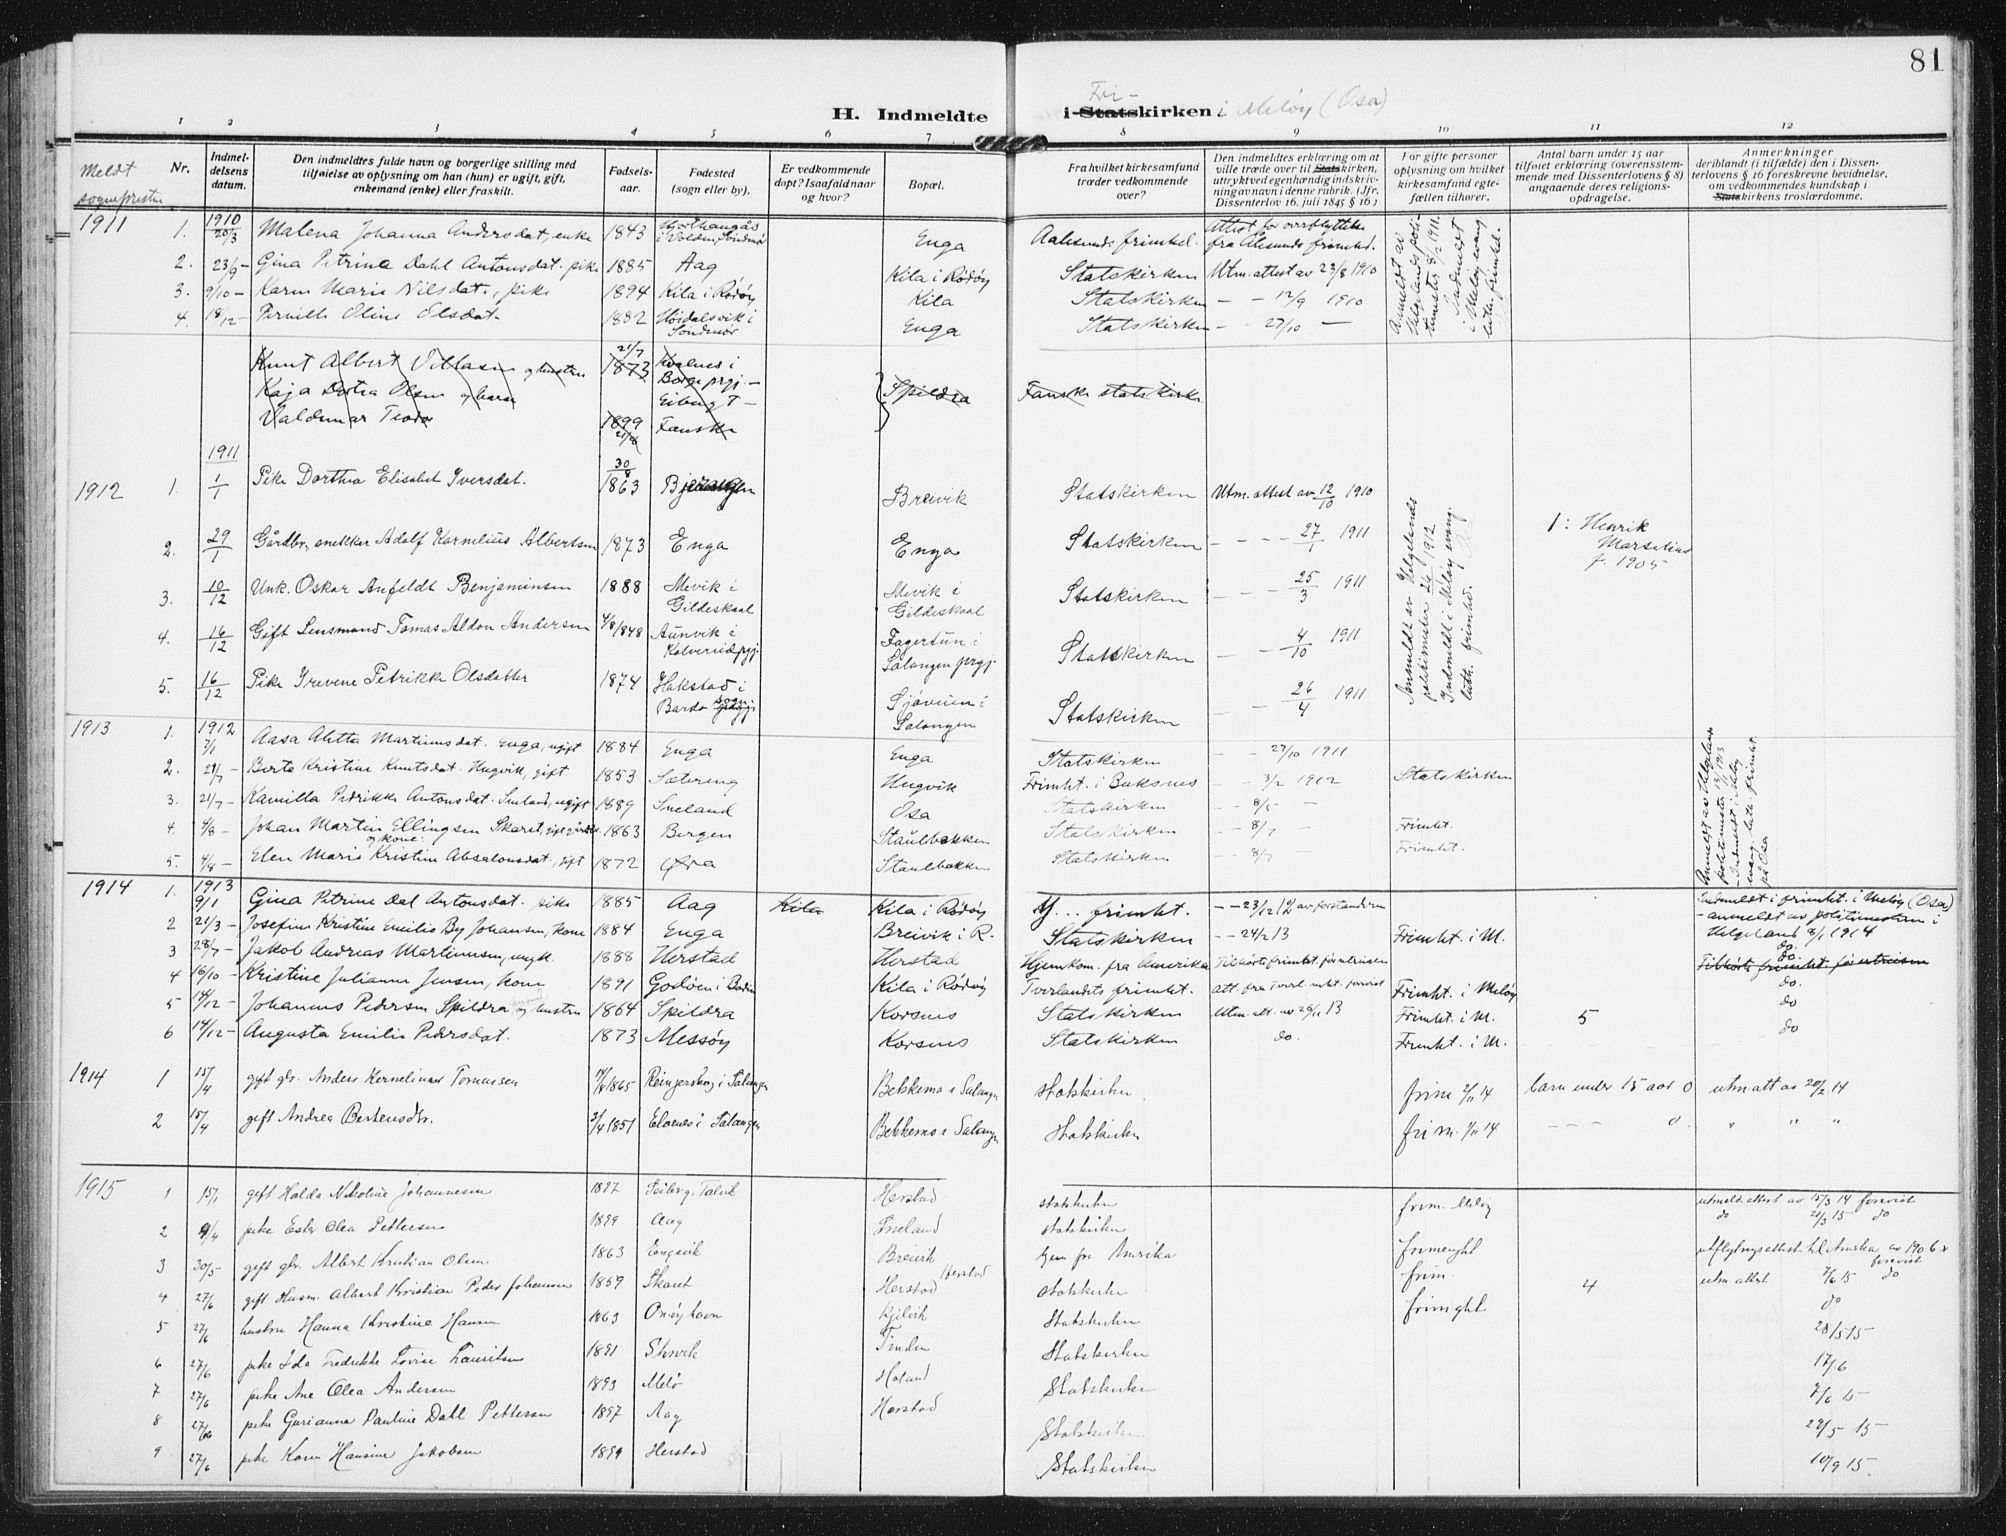 81
Fri-
H. Indmeldte i Statskirken i Meløy (Osa)
1 2 3 4 5 6 7 8 9 10 11 12
Meldt sognepresten
Nr.
Indmeldelsens datum.
Den indmeldtes fulde navn og borgerlige stilling med tilføielse av oplysning om han (hun) er ugift, gift, enkemand (enke) eller fraskilt.
Fødselsaar.
Fødested (sogn eller by).
Er vedkommende døpt? I saafald naar og hvor?
Bopæl.
Fra hvilket kirkesamfund træder vedkommende over?
Den indmeldtes erklæring om at ville træde over til Statskirken, uttrykt ved egenhændig indskrivning av navn i denne rubrik. (Jfr. Dissenterlov 16. juli 1845 § 16)
For gifte personer oplysning om hvilket kirkesamfund egtefællen tilhører.
Antal barn under 15 aar tilføiet erklæring (overensstemmende med Dissenterlovens § 8) angaaende deres religionsopdragelse.
Anmerkninger deriblandt (i tilfælde) den i Dissenterlovens § 16 foreskrevne bevidnelse, om vedkommendes kundskap i Statskirkens troslærdomme.
1911 1. 1910 20/3 Malena Johanna Andersdat, enke 1843 i Volden Søndmør Enga Aalesunds frimhel. Attest for overflyttelse fra Ålesunds frimhed.
2. 23/9 - Gina Petrina Dahl Antonsdat. pike 1885 Aag Kila i Rødøy Statskirken Utm. attest av 23/8 1910
3. 9/10 - Karen Marie Nilsdat., pike 1894 Kila i Rødøy Kila Statskirken - - 12/9 1910
4. 18/12 - Pernille Oline Olsdat. 1882 i Søndmør Enga Statskirken - - 27/10 -
Anmeldt av Helgelands politimester 8/2 1911. Indmeldt i Meløy evang. luth. frimhet.
Knut Albert Villasen og hustru 21/7 1873 Kvalnes i
Kaja Dortea Olsen og barn Borge prgj. - Spildra Fauske statskirke
Valdemar Teodor 1899 21/8 Fauske
1911
1912 1. 1/1 Pike Dorthea Elisabet Iversdat. 30/8 1863 Breivik Statskirken Utm. attest av 12/10 1910
2. 29/1 Gårdbr. snekker Adolf Kornelius Albertsen 1873 Enga Enga Statskirken - - - 27/1 1911 1: Henrik Marselius f. 1905
3. 10/12 Unk. Oskar Anfeldt Benjaminsen 1888 Mevik i Gildeskaal Mevik i Gildeskaal Statskirken - - - 25/3 1911
4. 16/12 Gift Lensmand Tomas Aldon Andersen 4/8 1848 Aunvik i Kolvereid prgj. Fagertun i Salangen prgj. Statskirken - - 4/10 1911
5. 16/12 Pike Irevene Petrikke Olsdatter 1874 Hakstad i Bardo sogn Sjøveien i Salangen Statskirken - - 26/4 1911
Anmeldt av Helgelands politimester 24/2 1912 Indmeldt i Meløy evang. luth. frimhed.
1913 1. 1912 7/1 Aasa Alitta Martinusdat. Enga, ugift 1884 Enga Enga Statskirken - - 27/10 1911
2. 21/7 - Berte Kristine Knutsdat. Hugvik, gift 1853 Sætering Hugvik Frimht. i Buksnes - - 3/2 1912 Statskirken
3. 21/7 - Kamilla Pedrikke Antonsdat. Sneland, ugift 1889 Sneland Osa Statskirken - - 8/5 -
4. 4/8 - Johan Martin Ellingsen Skaret, gift gårdbr. og kone: 1863 Bergen Staulbakken Statskirken - - 8/7 - Frimht.
5. 4/8 - Elen Marie Kristine Absalonsdat, gift 1872 Øra Staulbakken Statskirken - - 8/7 - Frimht.
Anmeldt av Helgelands politimester 13/1 1913 - Indmeldt i Meløy evang. luth. frimht. på Osa
1914 1. 1913 9/1 Gina Petrine Dal Antonsdat. pike 1885 Aag Kila Kila i Rødøy frimht. - - 23/12 12 av forstanderen Indmeldt i frimht. i Meløy (Osa) - anmeldt av politimesteren i Helgeland 8/1 1914
2 21/3 - Josefine Kristine Emilie By Johansen, kone 1884 Enga Breivik i R. Statskirken - - 24/2 13 Frimht. i M. do.
3 28/7 - Jakob Andreas Martinusen, ungk. 1888 Herstad Herstad Hjemkom. fra Amerika Tilhørte frimht. før utreisen do. Tilhørte frimht. før utreisen
4 16/10 - Kristine Julianne Jensen, kone 1891 Godøen i Bodin Kila i Rødøy Tverlandets frimht. att. fra Tverl. mht. forevist Frimht. i Meløy do.
5 14/12 - Johannes Pedersen Spildra og hustru 1864 Spildra Korsnes Statskirken Utm. att. av 26/11 13 Frimht. i M. 5 do
6 14/12 - Augusta Emilie Pedersdat. 1873 Messøy Korsnes Statskirken do. Frimht. i M. do
1914 1 15/4 gift gbr. Anders Kornelius Tomassen 1865 i Salangen Bekkemo i Salangen Statskirken frim 2/11 14 barn under 15 aar 0 utm att av 20/2 14
2 15/4 gift Andrea Berteusdtr. 2/4 1851 Elvenes i Salangen Bekkemo i Salangen Statskirken frim. 2/11 14 - - - 0. " " "
1915 1 15/1 gift Halda Nikoline Johannesen 1897 Talvik Herstad statskirken frim. Meløy utmeld. attest av 15/3 14 forevist
2 9/4 pike Ester Olea Pettersen 1899 Aag Sneland statskirken do 21/3 15 do
3 30/5 gift gbr. Albert Kristian Olsen 1863 Engavik Breivik hjem fra Amerika frimenght utflytnings attest til Amerika av 1906 forevist
4 27/6 gift Husm. Albert Kristian Peder Johansen 1859 Skaret Herstad Herstad statskirken frim. 4 utm attest 2/6 15 do
5 27/6 hustru Hanna Kristine Hansen 1863 Omøyhavn Kjelvik Statskirken frimght do
6 27/6 pike Ida Fredrikke Lovise Lauritsen 1891 Tinden Statskirken 28/5 15
7 27/6 pike Ane Olea Andersen 1893 Melø Haland Statskirken 17/6
8 27/6 pike Gurianna Pauline Dahl Pettersen 1897 Aag Herstad Statskirken 7/6 15
9 27/6 pike Karen Hansine Jakobsen 1899 Herstad Statskirken 29/5 15
10/9 15.